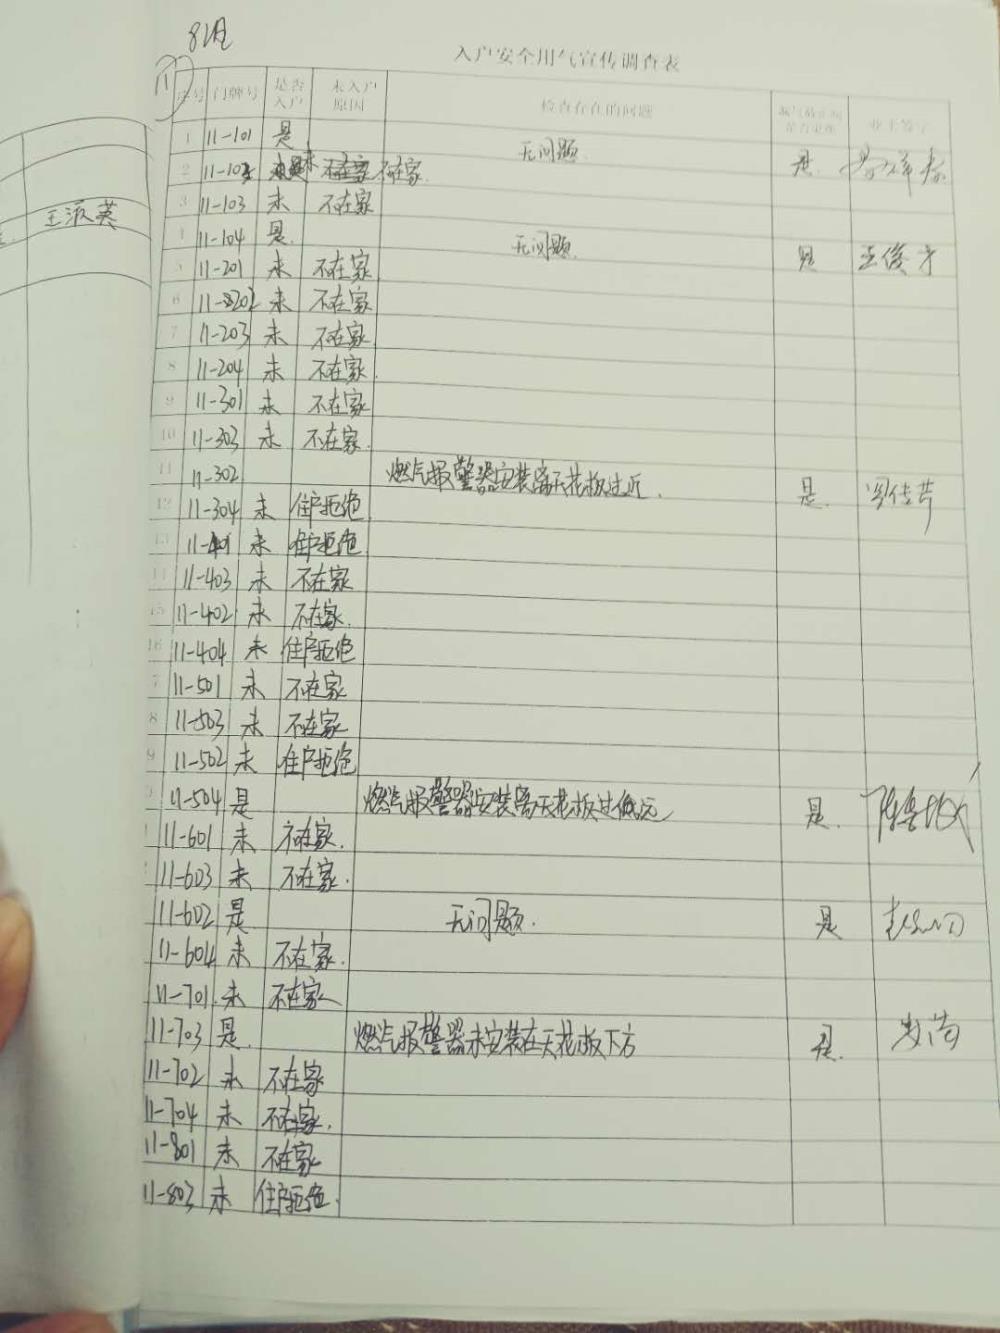 8月
入户安全用气宣传调查表
11
序号 门牌号 是否入户 未入户原因 检查存在的问题 业主签字
1 11-101 是 无问题 是
2 11-102 未 不在家 不在家
3 11-103 未 不在家
4 11-104 是. 无问题. 是 王俊才
5 11-201 未 不在家
6 11-202 未 不在家
7 11-203 未 不在家
8 11-204 未 不在家
9 11-301 未 不在家
10 11-303 未 不在家.
11 11-302 燃气报警器安装离天花板过近. 是.
12 11-304 未 住户拒绝
13 11-401 未 住户拒绝
14 11-403 未 不在家
15 11-402 未 不在家.
16 11-404 未 住户拒绝
7 11-501 未 不在家
8 11-503 未 不在家
9 11-502 未 住户拒绝
11-504 是 燃气报警器安装离天花板过低远 是.
11-601 未 不在家.
11-603 未 不在家.
11-602 是 无问题. 是
11-604 未 不在家.
11-701 未 不在家
11-703 是. 燃气报警器未安装在天花板下方 是.
11-702 未 不在家
11-704 未 不在家.
11-801 未 不在家
11-803 未 住户拒绝.
王派英